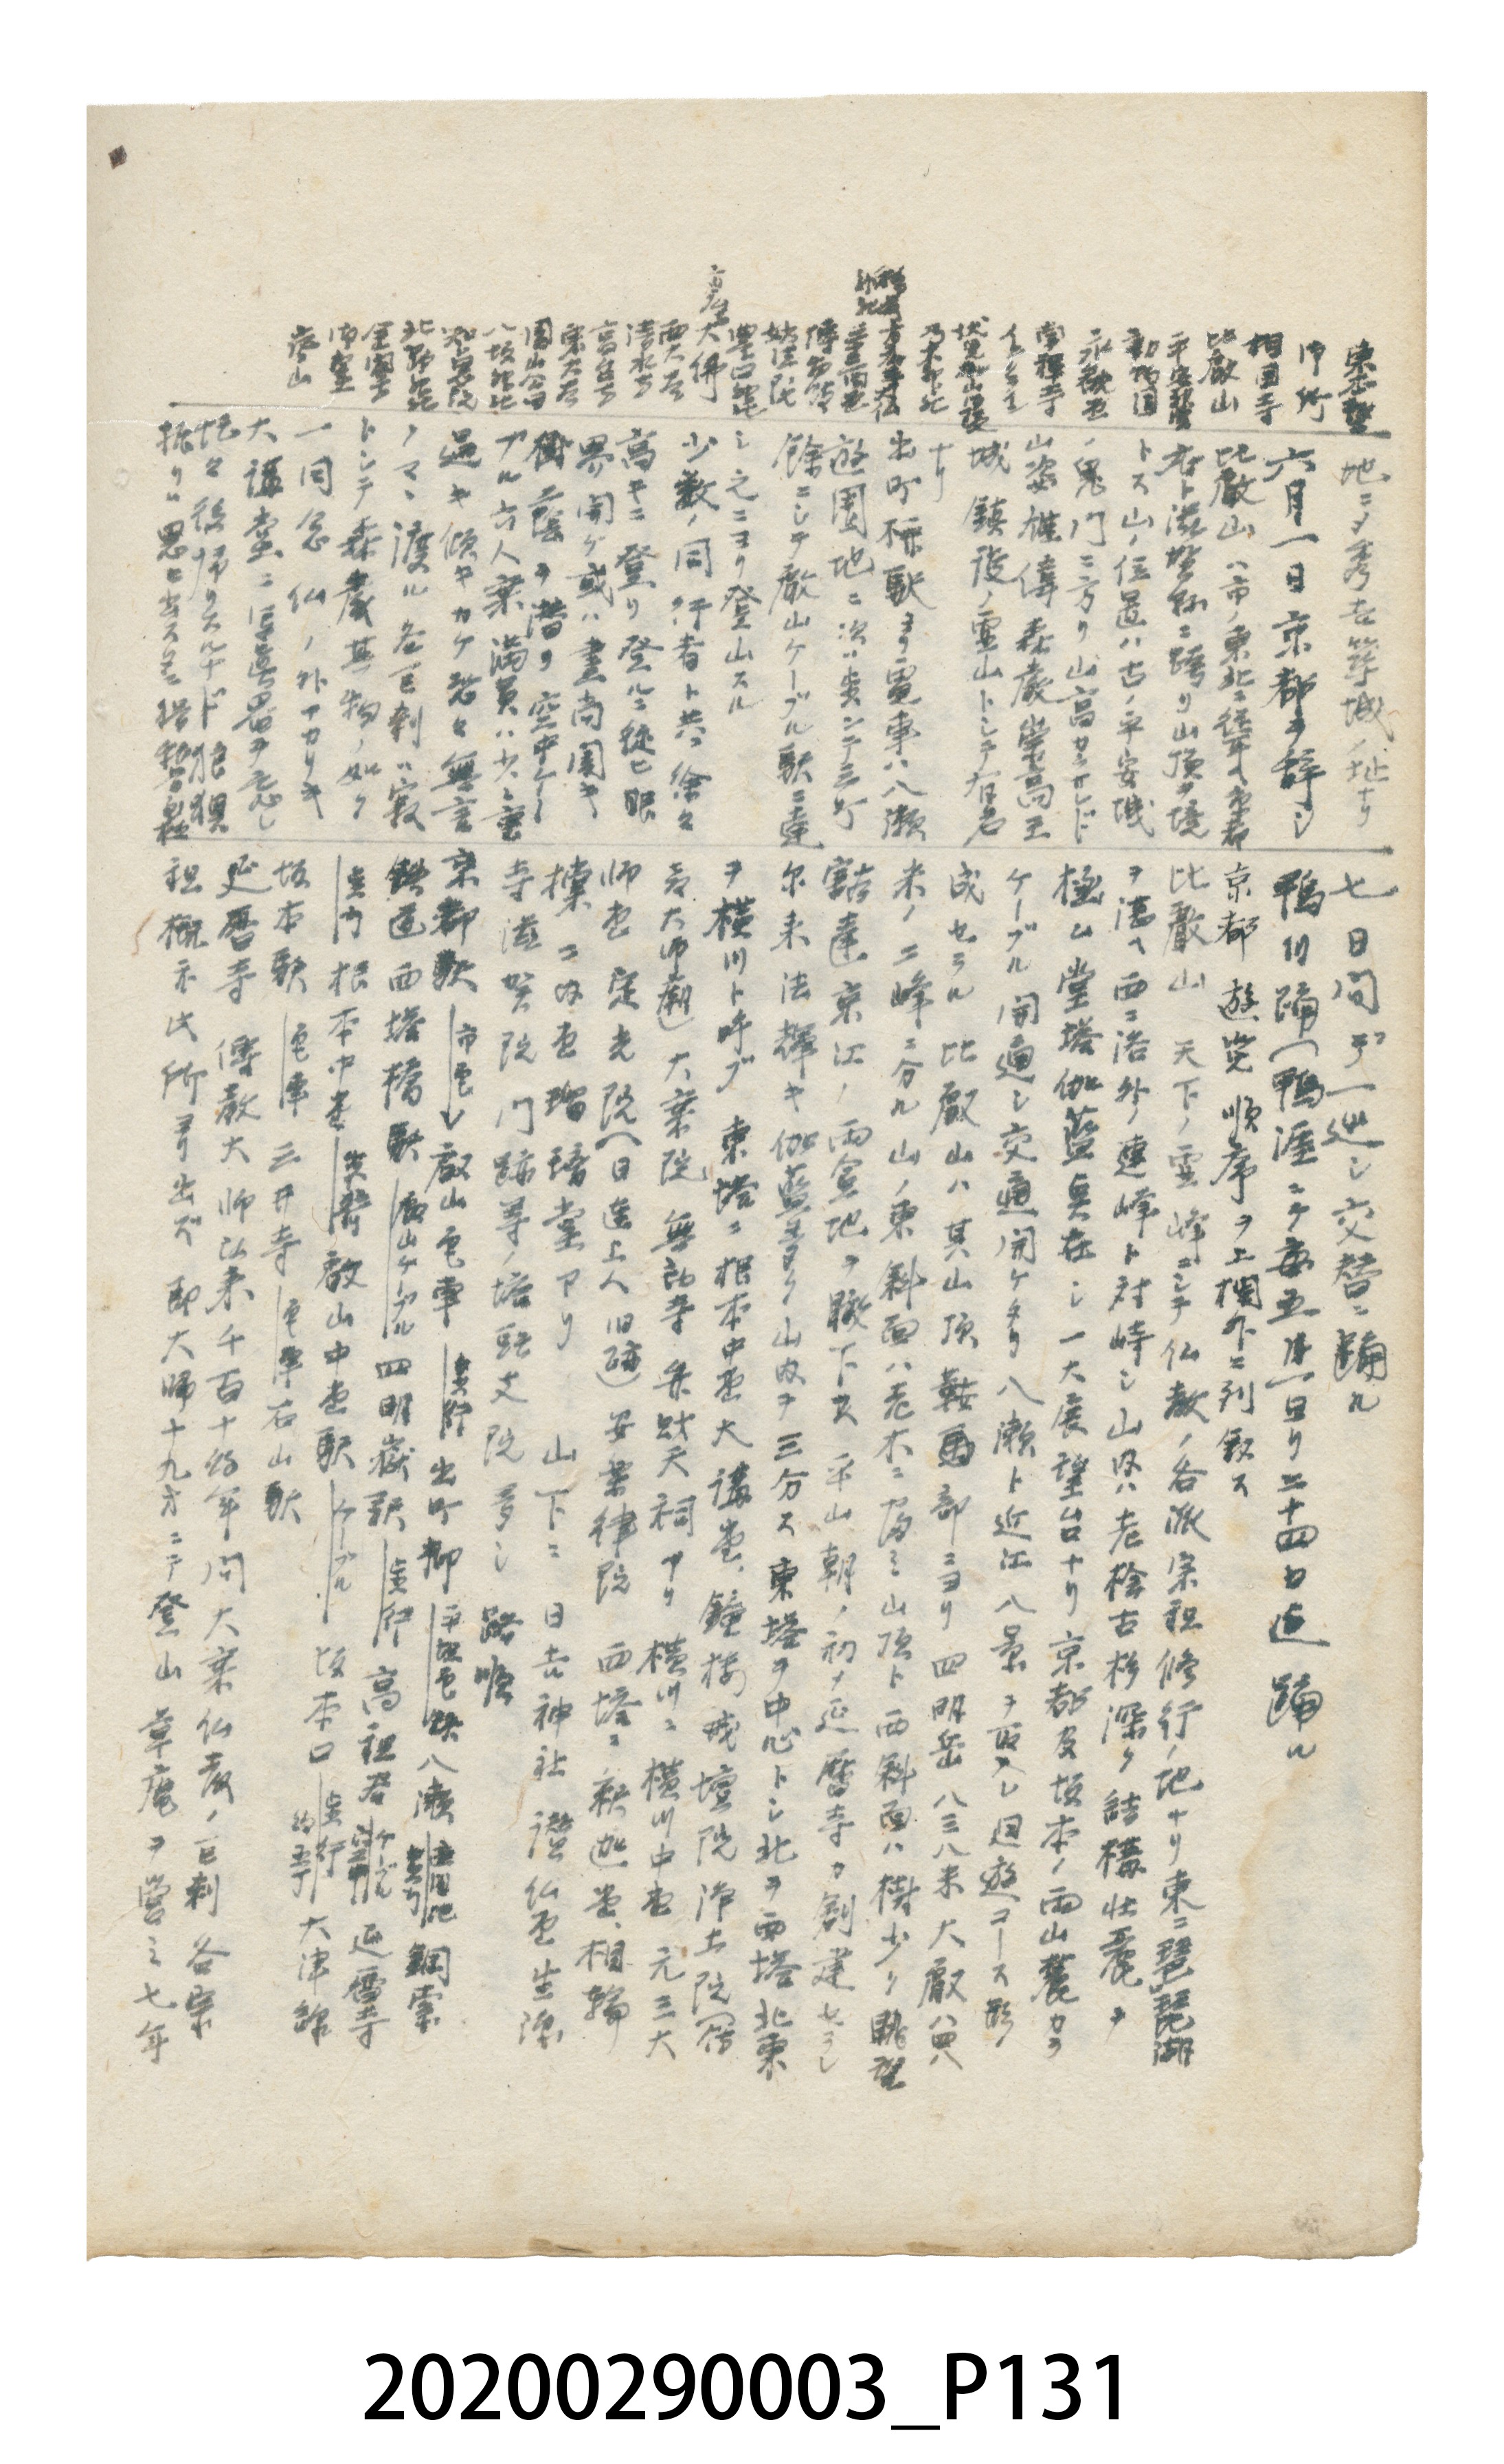 東本願寺
市街
相国寺
比叡山
平安神宮
動物園
永観堂
南禅寺
インクライン
伏見桃山御陵
乃木神社
稲荷神社
三十三間堂
博物館
妙法院
豊国神社
大佛
西大谷
清水寺
高台寺
東大谷
円山公園
八坂神社
知恩院
北野神社
金閣寺
御室
嵐山
地ニシテ秀吉築城ノ址ナリ
六月一日京都ヲ辞シ
比叡山ハ市ノ東北ニ聳ヘ京都
府ト滋賀縣ニ跨リ山頂ヲ境
トス山ノ位置ハ古ノ平安城
ノ鬼門ニ方リ山高カラザレド
山容雄偉森嚴崇高王
城鎮護ノ霊山トシテ有名
ナリ
出町柳駅ヨリ電車ハ八瀬
遊園地ニ次ハ歩ンデ三町
餘ニシテ叡山ケーブル駅ニ達
シ之ニヨリ登山スル
少数ノ同行者ト共ニ徐々
高キニ登リ登ルニ従ヒ眼
界開ケ或ハ晝尚闇キ
樹蔭ヲ潜リ空中ケー
ブル六人乗満員ハ少々重
過キ傾キカケ恐々無言
ノマヽ渡ル各古刹ハ寂
トシテ森嚴其物ノ如ク
一同念仏ノ外ナカリキ
大講堂ニ写真器ヲ忘レ
慌々後帰リスルナド狼狽
振リハ思ヒ出ス
七日間デ一巡シ交替ニ踊ル
鴨川踊(鴨涯ニテ毎五月一日ヨリ二十四日迄踊ル
京都遊覧順序ヲ上欄外ニ列叙ス
比叡山 天下ノ霊峰ニシテ仏教ノ各派宗祖修行ノ地ナリ東ニ琵琶湖
ヲ湛ヘ西ニ洛外ノ連峰ト対峙シ山内ハ老檜古杉深ク結構壮麗ヲ
極ム堂塔伽藍点在シ一大展望台ナリ京都及坂本ノ両山麓カラ
ケーブル開通シ交通開ケタリ八瀬ト近江八景ヲ取入レ廻遊コース形
成セラル 比叡山ハ其山頂鞍馬部ニヨリ四明岳八三八米大叡八四八
米ノ二峰ニ分ル山ノ東斜面ハ老木ニ富ミ山頂ト西斜面ハ樹少ク眺望
豁達京江ノ両盆地ヲ瞰下ス 平安朝ノ初メ延暦寺カ創建セラレ
尓来法輝キ伽藍多ク山内ヲ三分ス東塔ヲ中心トシ北ヲ西塔北東
ヲ横川ト呼ブ 東塔ニ根本中堂大講堂、鐘楼戒壇院浄土院(傳
教大師廟)大乗院無動寺弁財天祠アリ 横川ニ横川中堂元三大
師堂定光院(日蓮上人旧跡)安楽律院 西塔ニ釈迦堂、相輪
橖ニ内堂瑠璃堂アリ 山下ニ日吉神社讃仏堂生源
寺滋賀院門跡等ノ塔頭支院多シ 路順
京都駅 市電 叡山電車 出町柳 八瀬 鋼索
鉄道西塔橋駅 叡山ケーブル 四明嶽駅 徒歩 高祖谷 延暦寺
徒歩 根本中堂 徒歩 叡山中堂駅 ケーブル 坂本口 徒歩 大津線
坂本駅 電車 三井寺 電車 石山駅
延暦寺 傳教大師以来千百十餘年間大乗仏教ノ古刹各宗
祖概ネ此所ヨリ出ズ 即大師十九才ニテ登山草庵ヲ営ミ七年
20200290003_P131